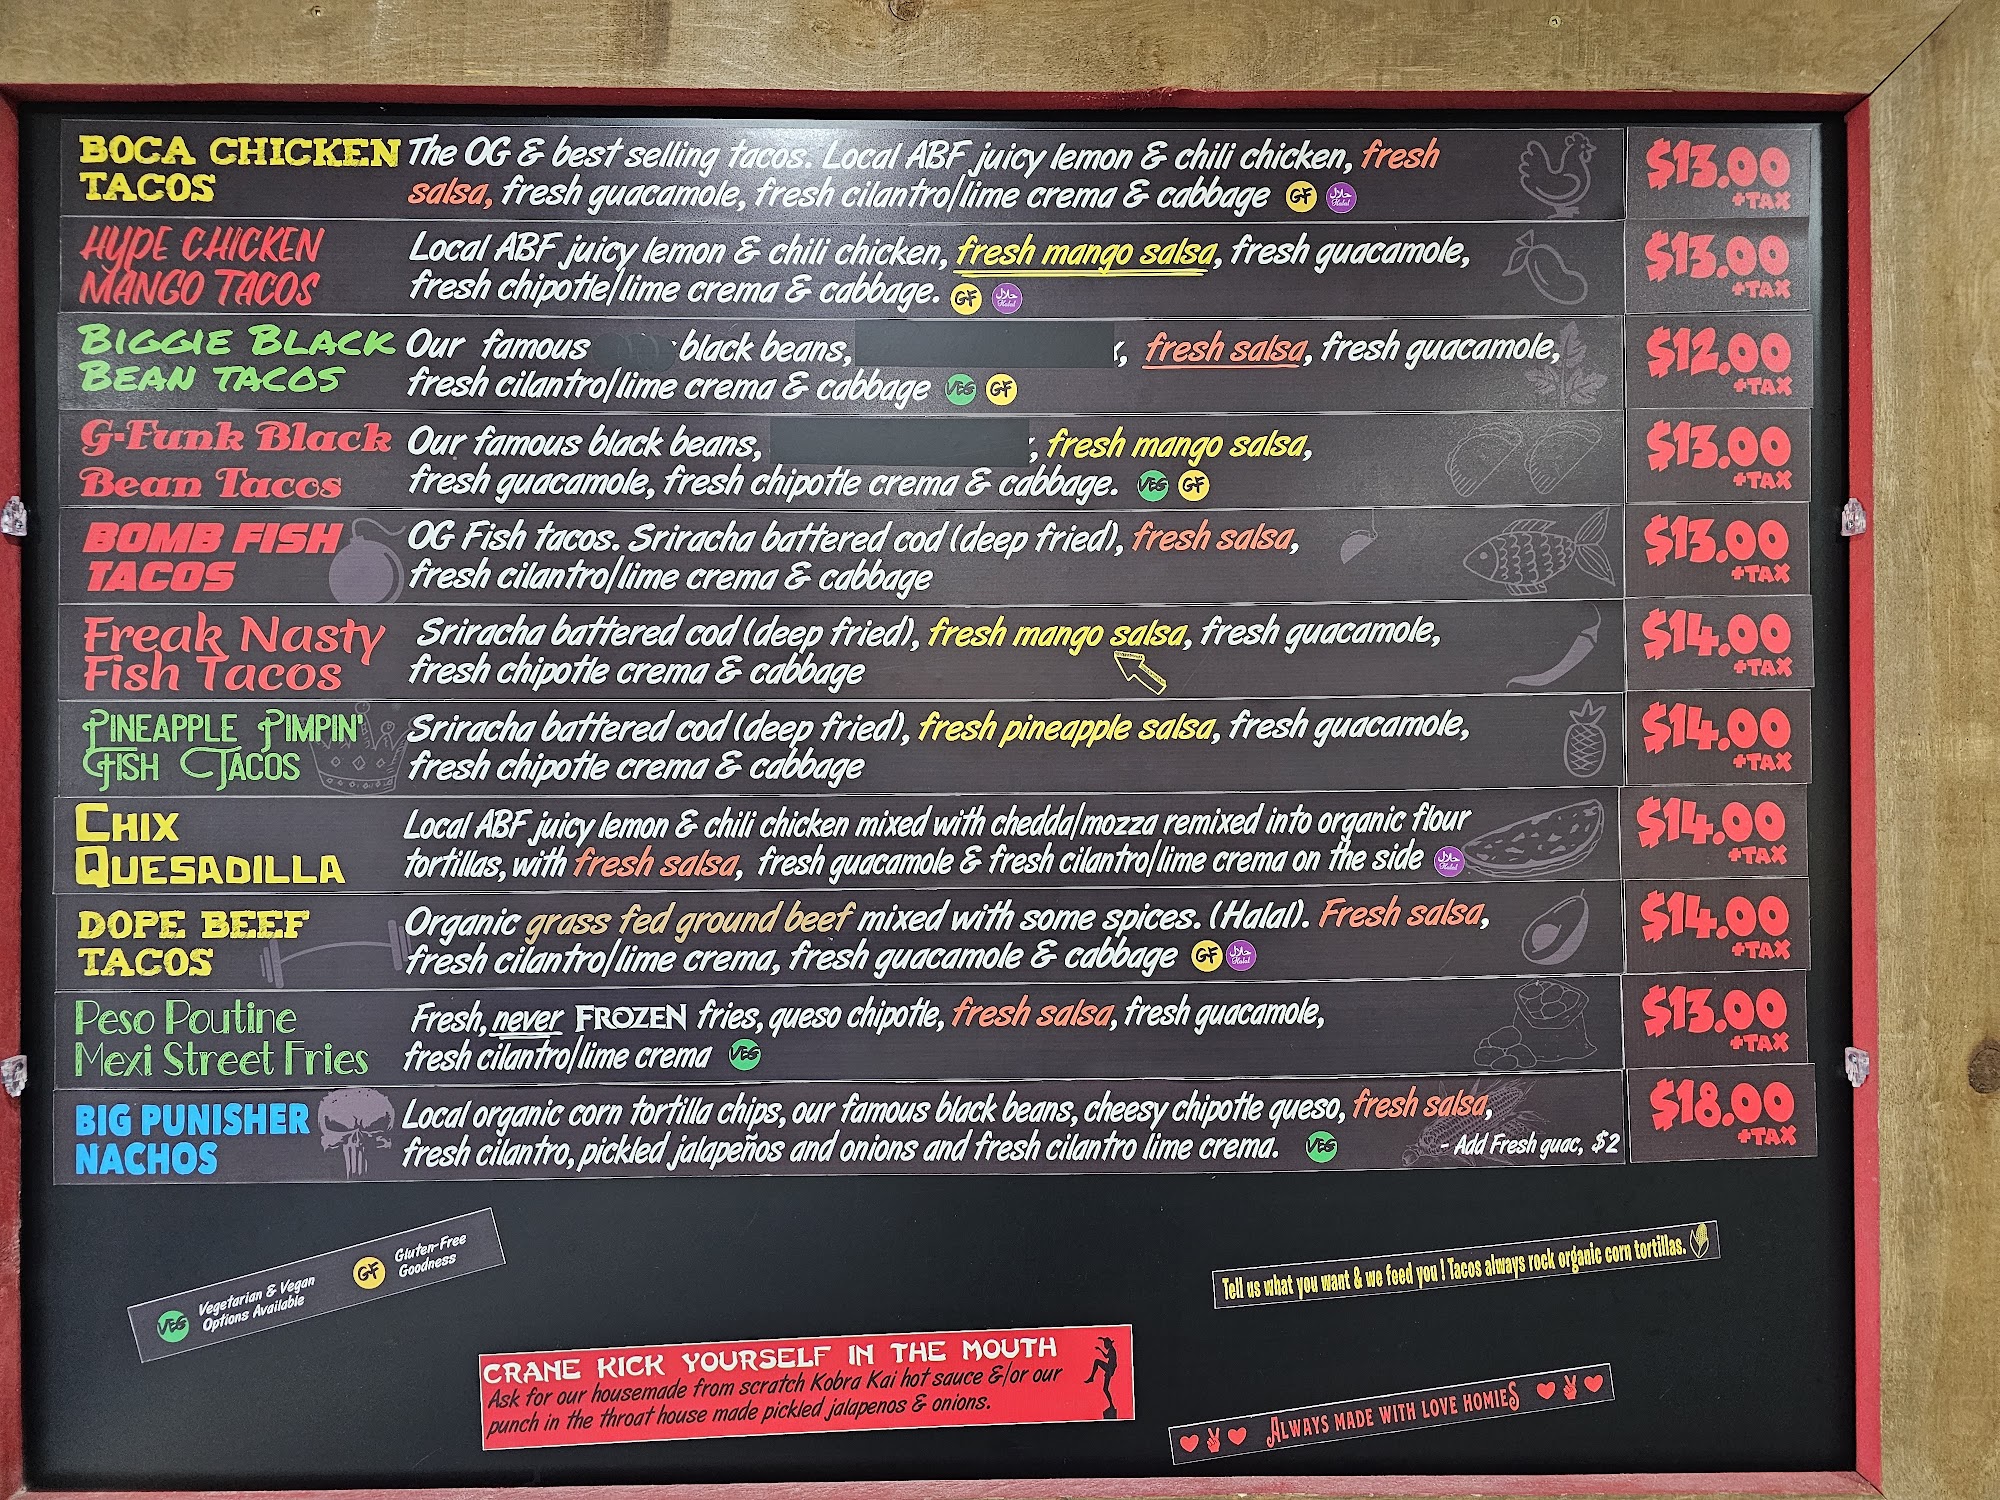 BOCA CHICKEN TACOS
The OG & best selling tacos. Local ABF juicy lemon & chili chicken, fresh
salsa, fresh guacamole, fresh cilantro/lime crema & cabbage GF حلال Halal
$13.00
+TAX
HYPE CHICKEN MANGO TACOS
Local ABF juicy lemon & chili chicken, fresh mango salsa, fresh guacamole,
fresh chipotle/lime crema & cabbage. GF حلال Halal
$13.00
+TAX
BIGGIE BLACK BEAN TACOS
Our famous black beans, , fresh salsa, fresh guacamole,
fresh cilantro/lime crema & cabbage VEG GF
$12.00
+TAX
G-Funk Black Bean Tacos
Our famous black beans, , fresh mango salsa,
fresh guacamole, fresh chipotle crema & cabbage. VEG GF
$13.00
+TAX
BOMB FISH TACOS
OG Fish tacos. Sriracha battered cod (deep fried), fresh salsa,
fresh cilantro/lime crema & cabbage
$13.00
+TAX
Freak Nasty Fish Tacos
Sriracha battered cod (deep fried), fresh mango salsa, fresh guacamole,
fresh chipotle crema & cabbage
$14.00
+TAX
PINEAPPLE PIMPIN' FISH TACOS
Sriracha battered cod (deep fried), fresh pineapple salsa, fresh guacamole,
fresh chipotle crema & cabbage
$14.00
+TAX
CHIX QUESADILLA
Local ABF juicy lemon & chili chicken mixed with chedda/mozza remixed into organic flour
tortillas, with fresh salsa, fresh guacamole & fresh cilantro/lime crema on the side حلال Halal
$14.00
+TAX
DOPE BEEF TACOS
Organic grass fed ground beef mixed with some spices. (Halal). Fresh salsa,
fresh cilantro/lime crema, fresh guacamole & cabbage GF حلال Halal
$14.00
+TAX
Peso Poutine Mexi Street Fries
Fresh, never FROZEN fries, queso chipotle, fresh salsa, fresh guacamole,
fresh cilantro/lime crema VEG
$13.00
+TAX
BIG PUNISHER NACHOS
Local organic corn tortilla chips, our famous black beans, cheesy chipotle queso, fresh salsa,
fresh cilantro, pickled jalapeños and onions and fresh cilantro lime crema. VEG - Add Fresh guac, $2
$18.00
+TAX
VEG Vegetarian & Vegan
Options Available
GF Gluten-Free
Goodness
Tell us what you want & we feed you! Tacos always rock organic corn tortillas.
CRANE KICK YOURSELF IN THE MOUTH
Ask for our housemade from scratch Kobra Kai hot sauce &/or our
punch in the throat house made pickled jalapenos & onions.
ALWAYS MADE WITH LOVE HOMIES